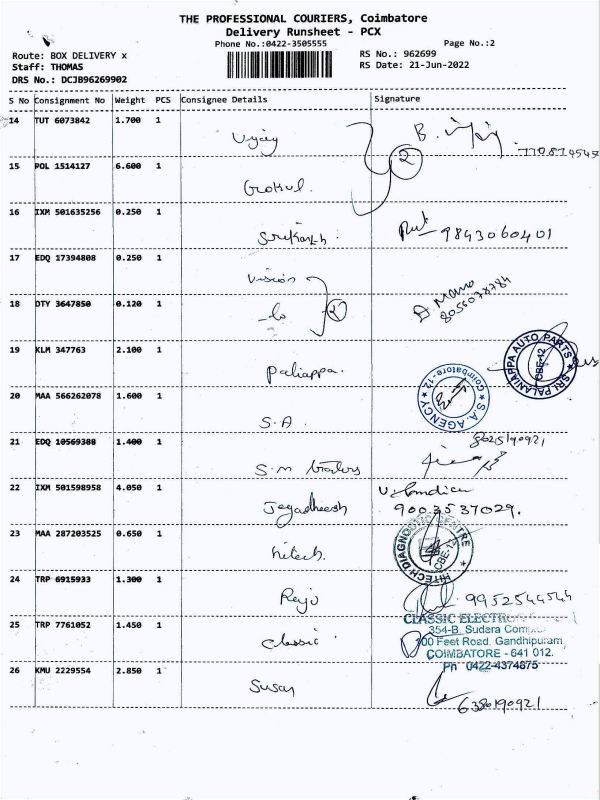 THE PROFESSIONAL COURIERS, Coimbatore
Delivery Runsheet - PCX
Phone No.:0422-3505555
Page No.:2
Route: BOX DELIVERY x
RS No.: 962699
Staff: THOMAS
RS Date: 21-Jun-2022
DRS No.: DCJB96269902
S No Consignment No Weight PCS Consignee Details Signature
14 TUT 6073842 1.700 1
Vijay B.
15 POL 1514127 6.600 1
2
Gokul.
16 IXM 501635256 0.250 1
Srikanth. 9843060401
17 EDQ 17394808 0.250 1
Vision
18 DTY 3647850 0.120 1
2
8056078784
19 KLM 347763 2.100 1
SRI PALANIAPPA AUTO PARTS
CBE-12
Paliappa.
20 MAA 566262078 1.600 1
S.A. AGENCY
Coimbatore-12
S.A
21 EDQ 10569388 1.400 1
S.M traders
22 IXM 501598958 4.050 1
Jegadheesh 9003537029.
23 MAA 287203525 0.650 1
HITECH DIAGNOSTIC CENTRE
CBE-12
hitech.
24 TRP 6915933 1.300 1
Raju 9952544544
25 TRP 7761052 1.450 1
CLASSIC ELECTR
354-B, Sudara
classic 100 Feet Road, Gandhipuram,
COIMBATORE - 641 012.
Ph 0422-4374875
26 KMU 2229554 2.850 1
Susay
6386190921